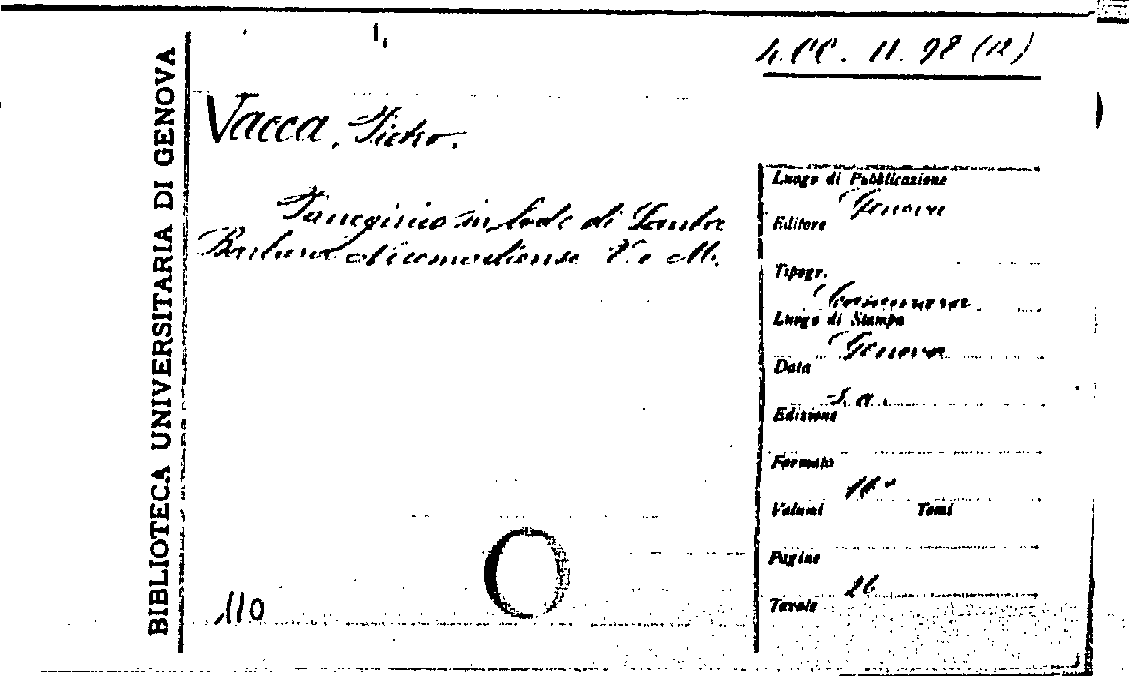 BIBLIOTECA UNIVERSITARIA DI GENOVA
4. CC. II. 98 (12)
Vacca, Pietro.
Panegirico in lode di Santa
Barbara Nicomediense V. e M.
Luogo di Pubblicazione
Genova
Editore
Tipogr.
Casamara
Luogo di Stampa
Genova
Data
s. a.
Edizione
Formato
16°
Volumi Tomi
Pagine
26
Tavole
110